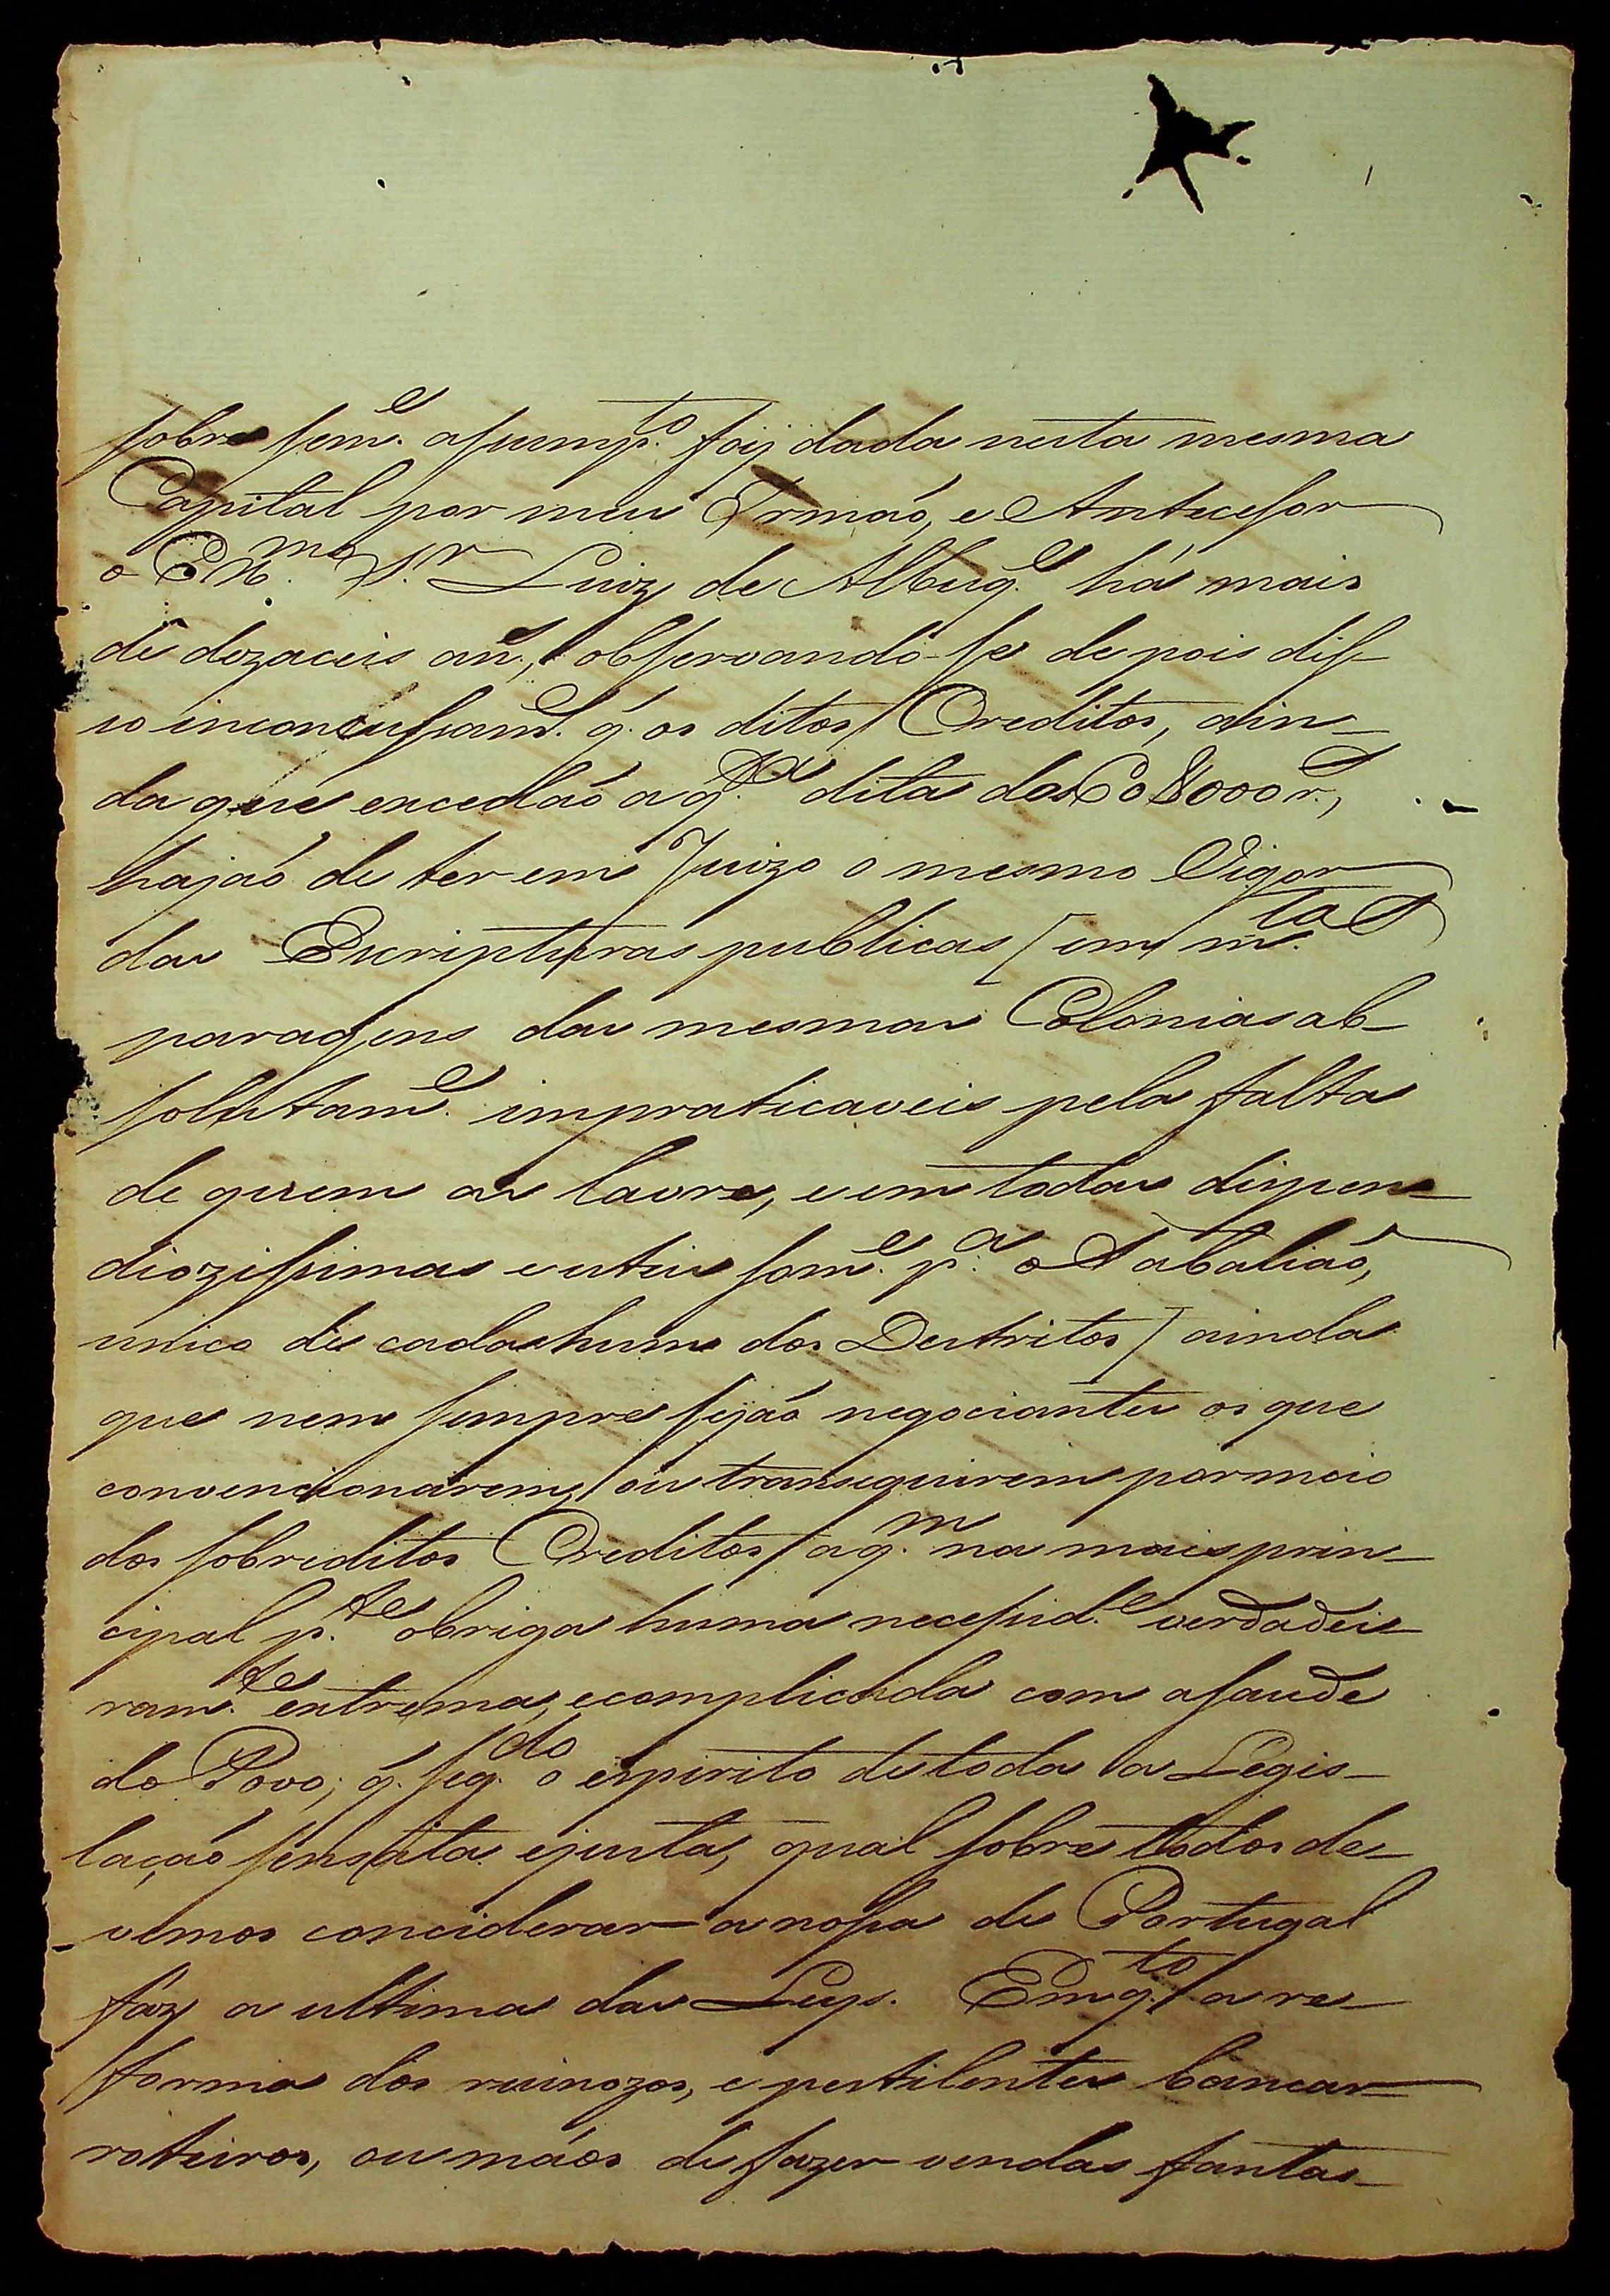 sobre sem.e assump.to foy dada nesta mesma
Capital por meu Irmaõ, e Antecessor
o Ex.mo S.r Luiz de Albuq.e há mais
de dezaceis an.s, observando-se depois dis-
so inconcussam.e q. os ditos Creditos, ain-
da que excedaõ a q.ta dita dos 60$000 r.s,
hajaõ de ter em Juizo o mesmo Vigor
das Escripturas publicas [em m.tas
paragens das mesmas Colonias ab-
solutam.e impraticaveis pela falta
de quem as lavre, e em todas dispen-
diozissimas e uteis som.e p.a o Tabaliaõ,
unico de cada hum dos Destritos] ainda
que nem sempre sejaõ negociantes os que
convencionarem, ou transeguirem por meio
dos sobreditos Creditos, a q.m na mais prin-
cipal p.te obriga huma necessid.e verdadei-
ram.te extrema, e complicada com a saude
do Povo; q. seg.do o espirito de toda a Legis-
laçaõ sensata e justa, qual sobre todos de-
vemos conciderar a nossa de Portugal
faz a ultima das Leys. Emq.to a re-
forma dos ruinozos, e pestilentes bancar-
roteiros, ou máos de fazer vendas fantas-